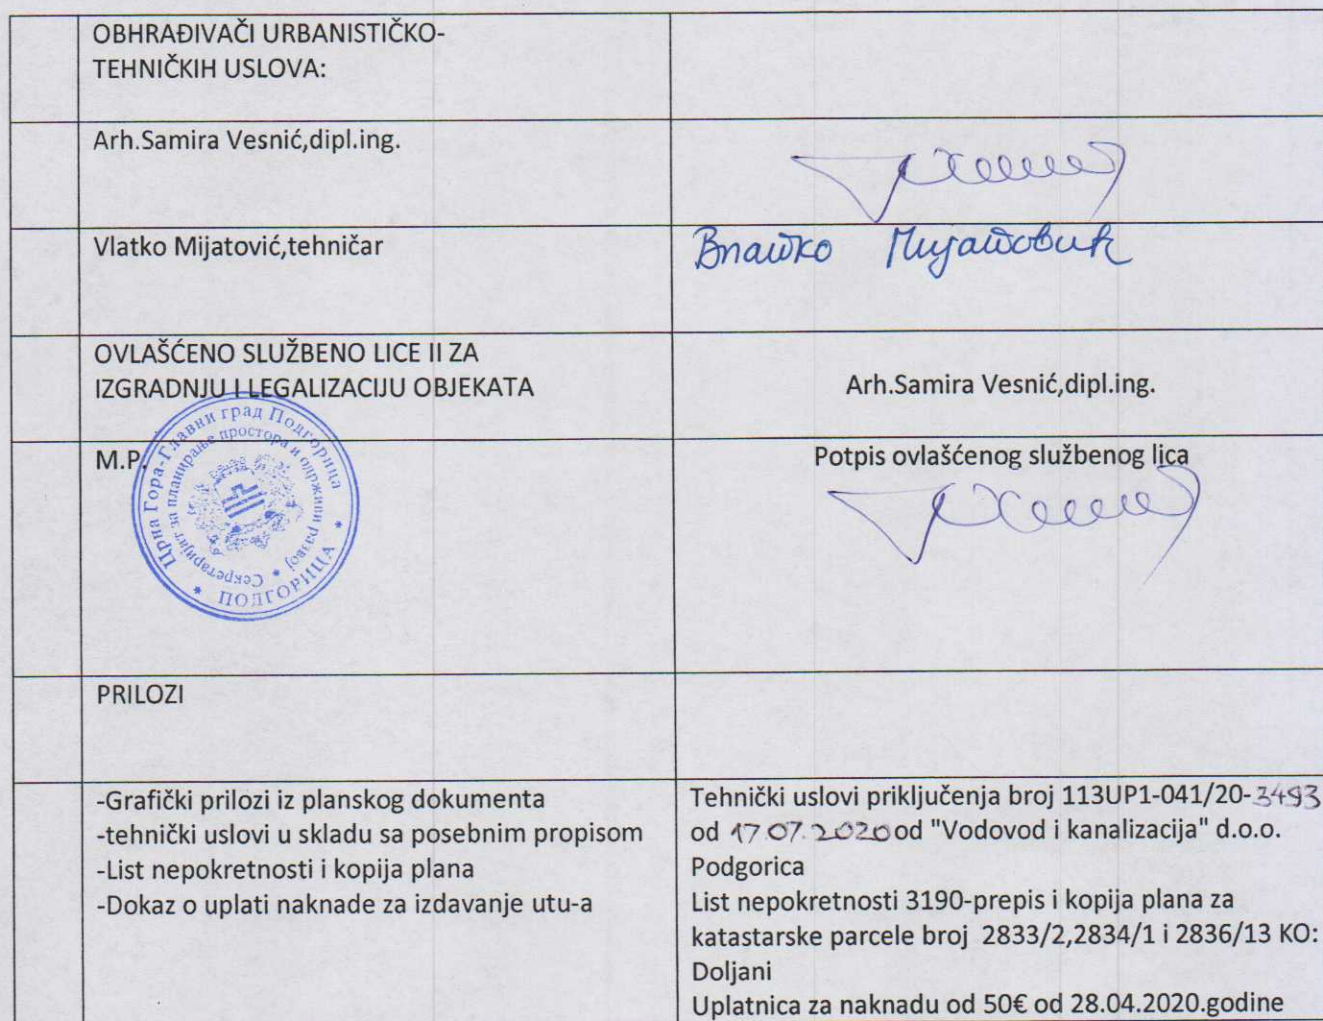 OBHRAĐIVAČI URBANISTIČKO-
TEHNIČKIH USLOVA:
Arh.Samira Vesnić,dipl.ing.
Vlatko Mijatović,tehničar
Влатко Мијатовић
OVLAŠĆENO SLUŽBENO LICE II ZA
IZGRADNJU I LEGALIZACIJU OBJEKATA
Arh.Samira Vesnić,dipl.ing.
M.P.
Црна Гора-Главни град Подгорица
Секретаријат за планирање простора и одрживи развој
ПОДГОРИЦА
Potpis ovlašćenog službenog lica
PRILOZI
-Grafički prilozi iz planskog dokumenta
-tehnički uslovi u skladu sa posebnim propisom
-List nepokretnosti i kopija plana
-Dokaz o uplati naknade za izdavanje utu-a
Tehnički uslovi priključenja broj 113UP1-041/20-3493
od 17.07.2020 od "Vodovod i kanalizacija" d.o.o.
Podgorica
List nepokretnosti 3190-prepis i kopija plana za
katastarske parcele broj 2833/2,2834/1 i 2836/13 KO:
Doljani
Uplatnica za naknadu od 50€ od 28.04.2020.godine